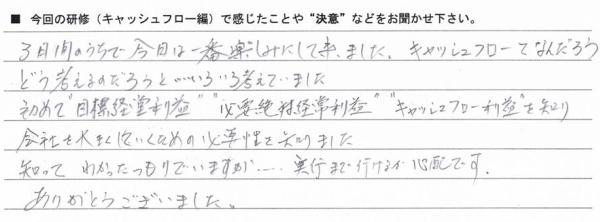 ■ 今回の研修（キャッシュフロー編）で感じたことや“決意”などをお聞かせ下さい。
3日間のうちで今日は一番楽しみにして来ました。キャッシュフローてなんだろう
どう考えるのだろうといろいろ考えていました
初めて“目標経営利益”“必要絶対経常利益”“キャッシュフロー利益”を知り
会社を大きくしていくための必要性を知りました
知って わかったつもりでいますが……実行まで行けるか心配です。
ありがとうございました。